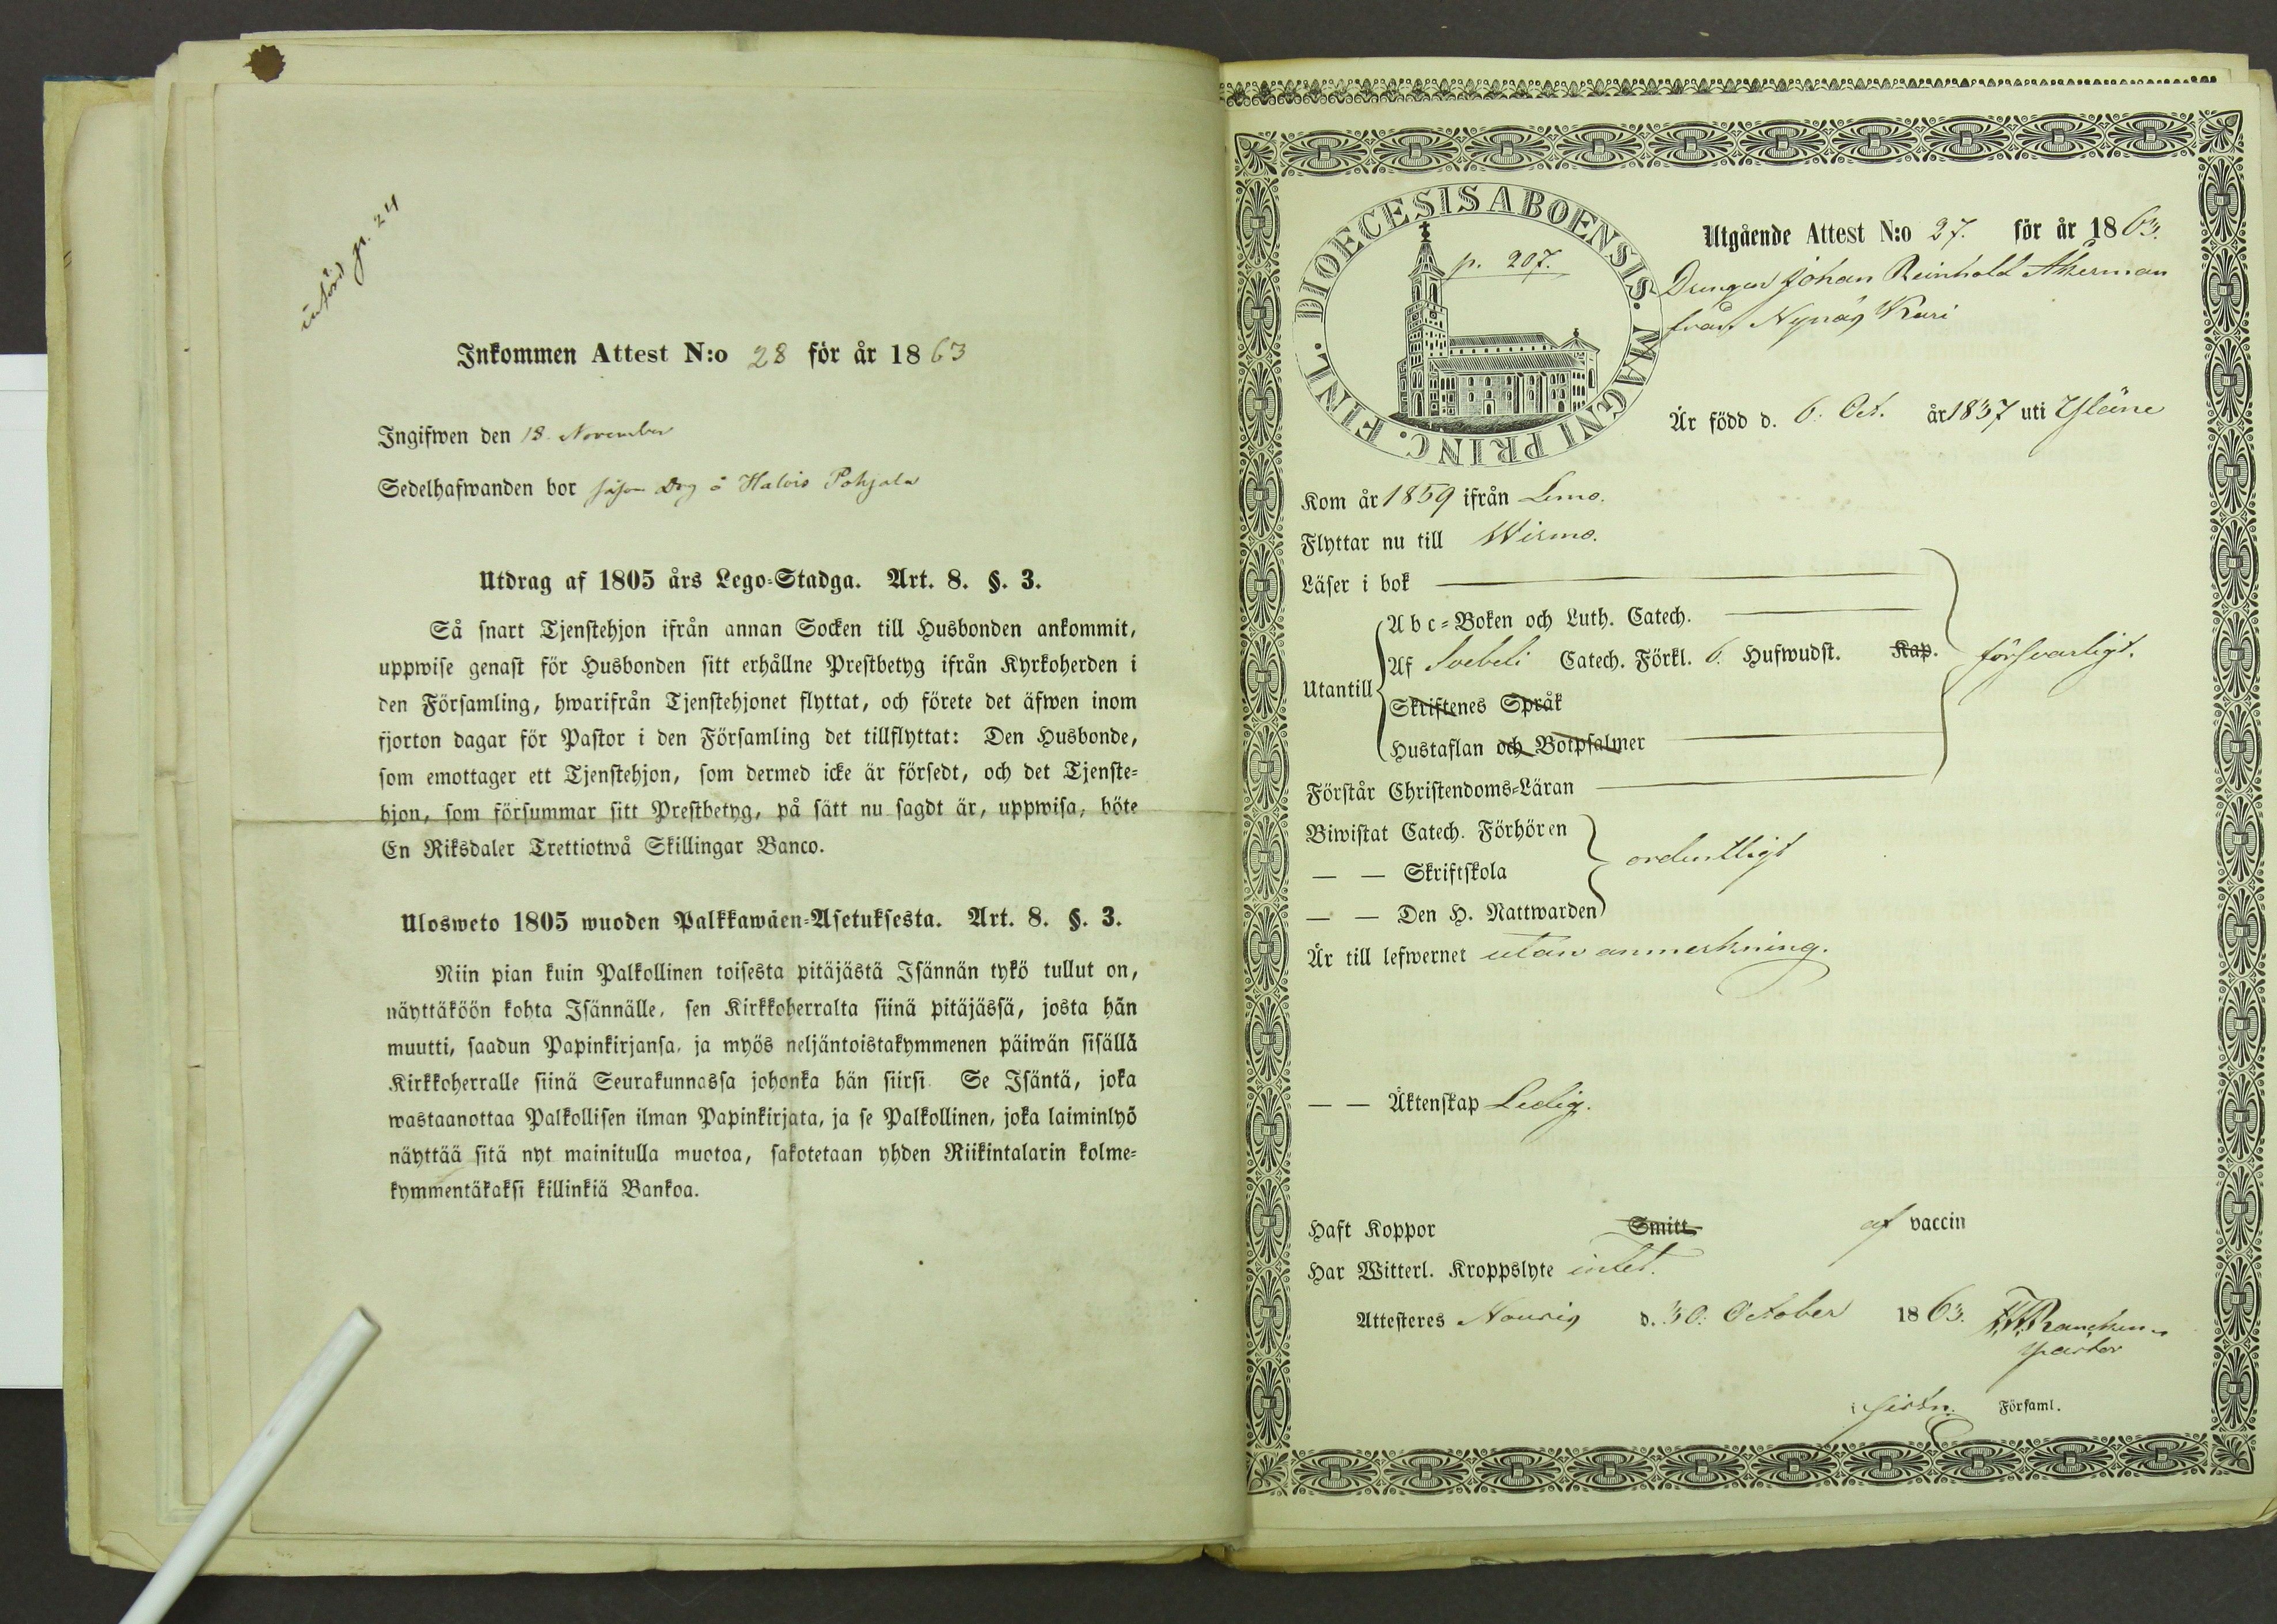 införd p. 24
Inkommen Attest N:o 28 för år 1863
Ingifwen den 18. November
Sedelhafwanden bor såsom Drg å Halvis Pohjala
Utdrag af 1805 års Lego-Stadga. Art. 8. §. 3.
Så snart Tjenstehjon ifrån annan Socken till Husbonden ankommit,
uppwise genast för Husbonden sitt erhållne Prestbetyg ifrån Kyrkoherden i
den Församling, hwarifrån Tjenstehjonet flyttat, och förete det äfwen inom
fjorton dagar för Pastor i den Församling det tillflyttat: Den Husbonde,
som emottager ett Tjenstehjon, som dermed icke är försedt, och det Tjenste-
hjon, som försummar sitt Prestbetyg, på sätt nu sagdt är, uppwisa, böte
En Riksdaler Trettiotwå Skillingar Banco.
Ulosweto 1805 wuoden Palkkawäen-Asetuksesta. Art. 8. §. 3.
Niin pian kuin Palkollinen toisesta pitäjästä Isännän tykö tullut on,
näyttäköön kohta Isännälle, sen Kirkkoherralta siinä pitäjässä, josta hän
muutti, saadun Papinkirjansa, ja myös neljäntoistakymmenen päiwän sisällä
Kirkkoherralle siinä Seurakunnassa johonka hän siirsi. Se Isäntä, joka
wastaanottaa Palkollisen ilman Papinkirjata, ja se Palkollinen, joka laiminlyö
näyttää sitä nyt mainitulla muotoa, sakotetaan yhden Riikintalarin kolme-
kymmentäkaksi killinkiä Bankoa.
DIOECESIS ABOENSIS. MAGNI PRINC. FINL.
p. 207.
Utgående Attest N:o 27. för år 1863.
Drengen Johan Reinhold Åkerman
från Nynäs Kari
Är född d. 6. Oct. år 1837 uti Yläne
Kom år 1859 ifrån Lemo.
Flyttar nu till Wirmo.
Läser i bok
Utantill
Abc-Boken och Luth. Catech.
Af Svebeli Catech. Förkl. 6. Hufwudst. Kap. försvarligt.
Skriftenes Språk
Hustaflan och Botpsalmer
Förstår Christendoms-Läran
Biwistat Catech. Förhören
— — Skriftskola ordentligt
— — Den H. Nattwarden
Är till lefwernet utan anmerkning.
— — Äktenskap Ledig.
Haft Koppor Smitt af vaccin
Har Witterl. Kroppslyte intet.
Attesteres Nousis d. 30. October 1863.
Pastor
i Församl.